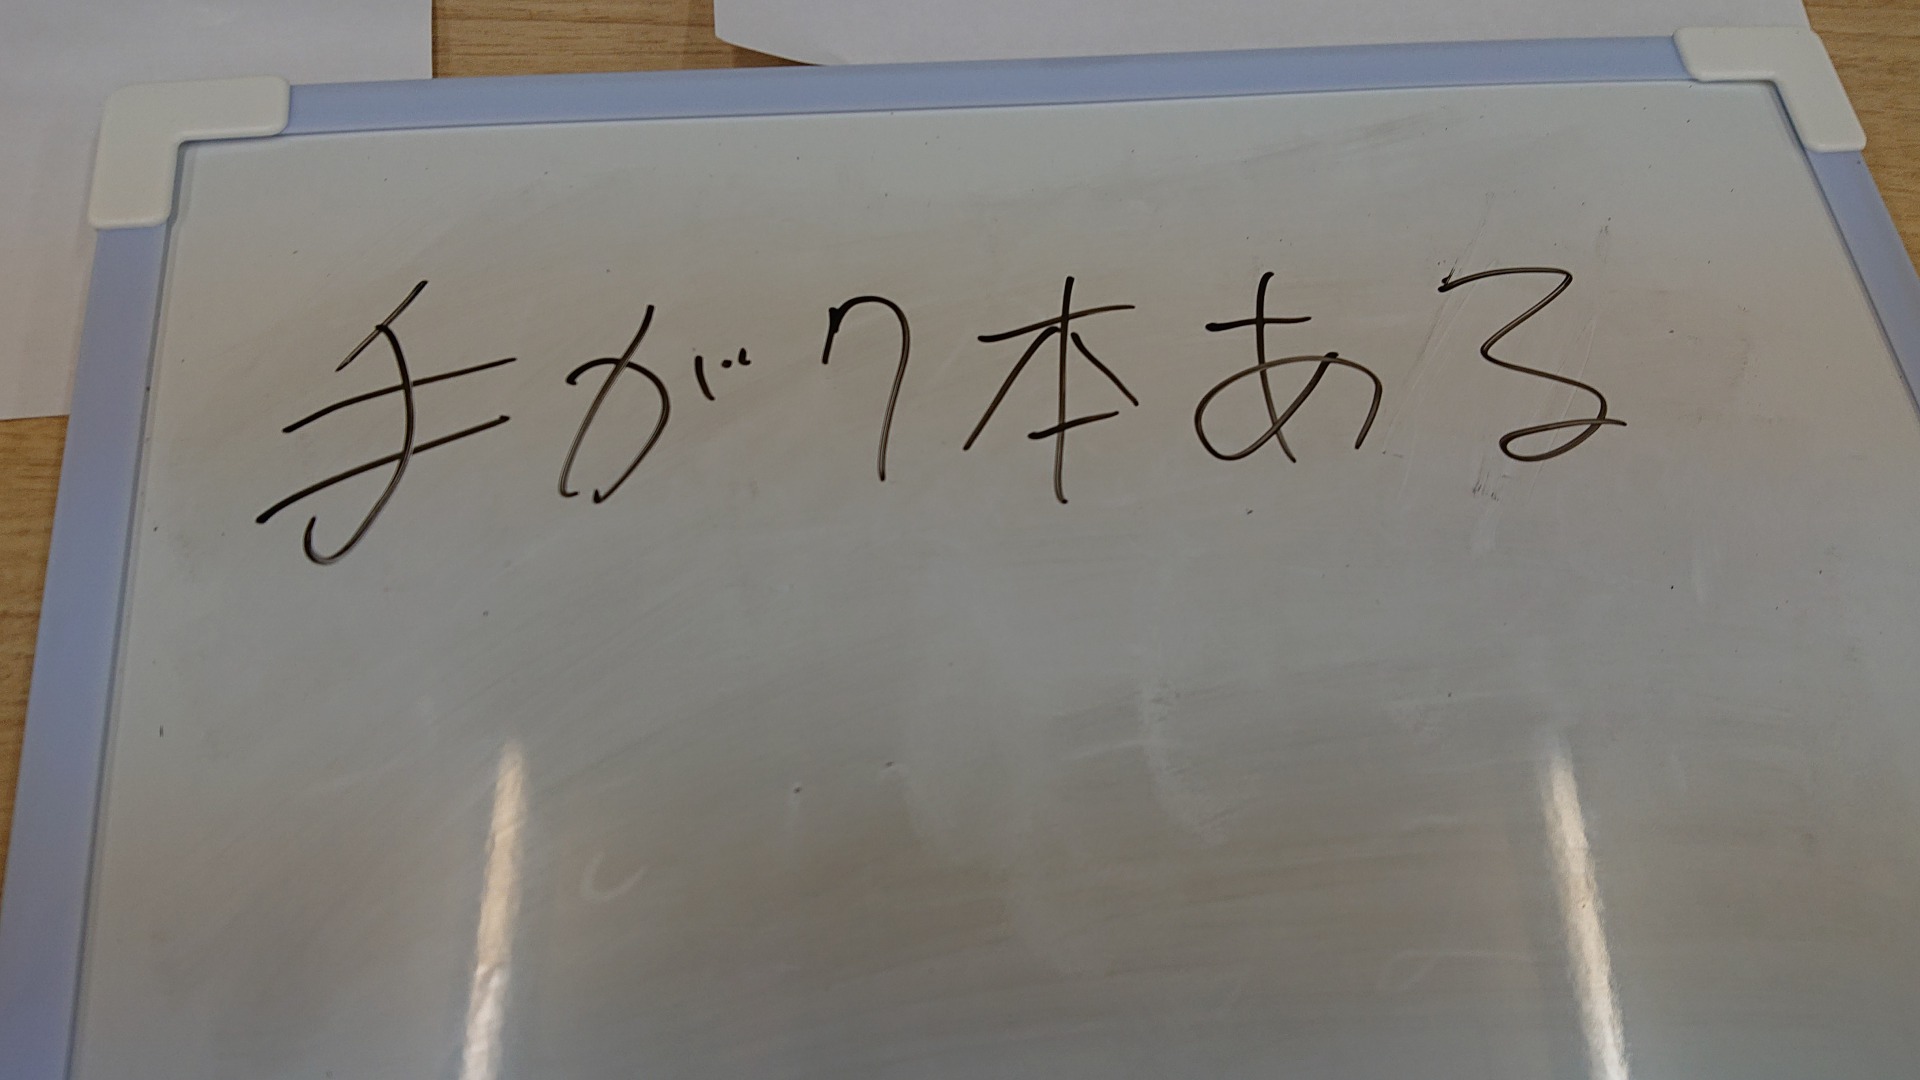 手が7本ある